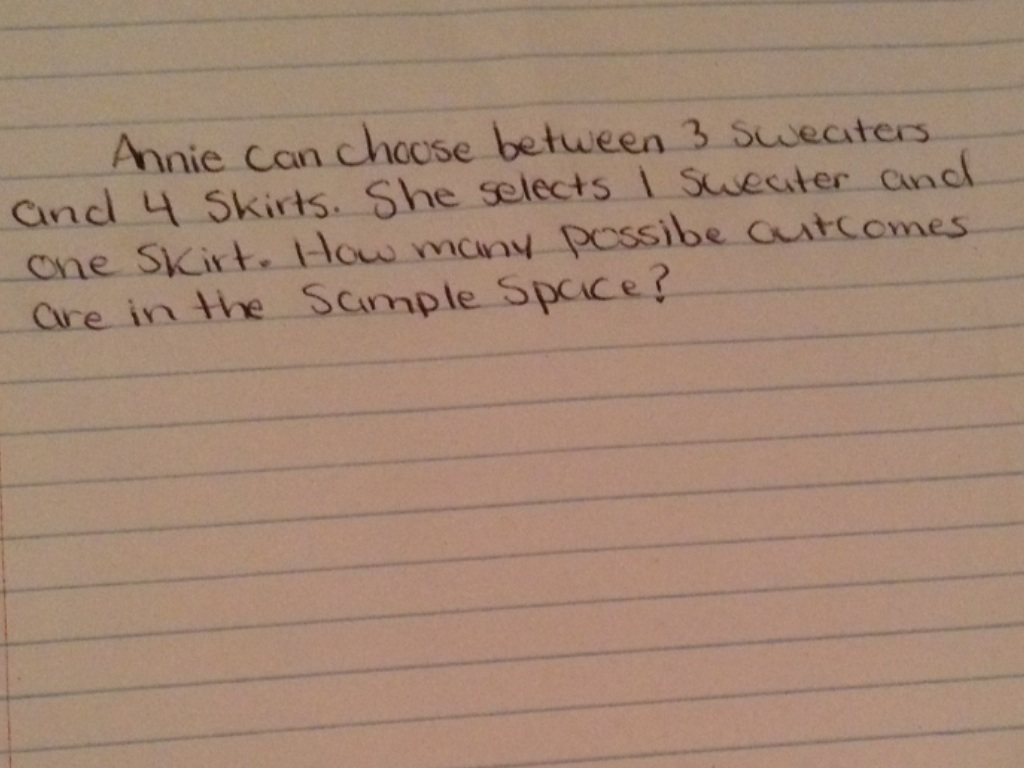 Annie can choose between 3 sweaters
and 4 skirts. She selects 1 sweater and
one skirt. How many possibe outcomes
are in the sample space?